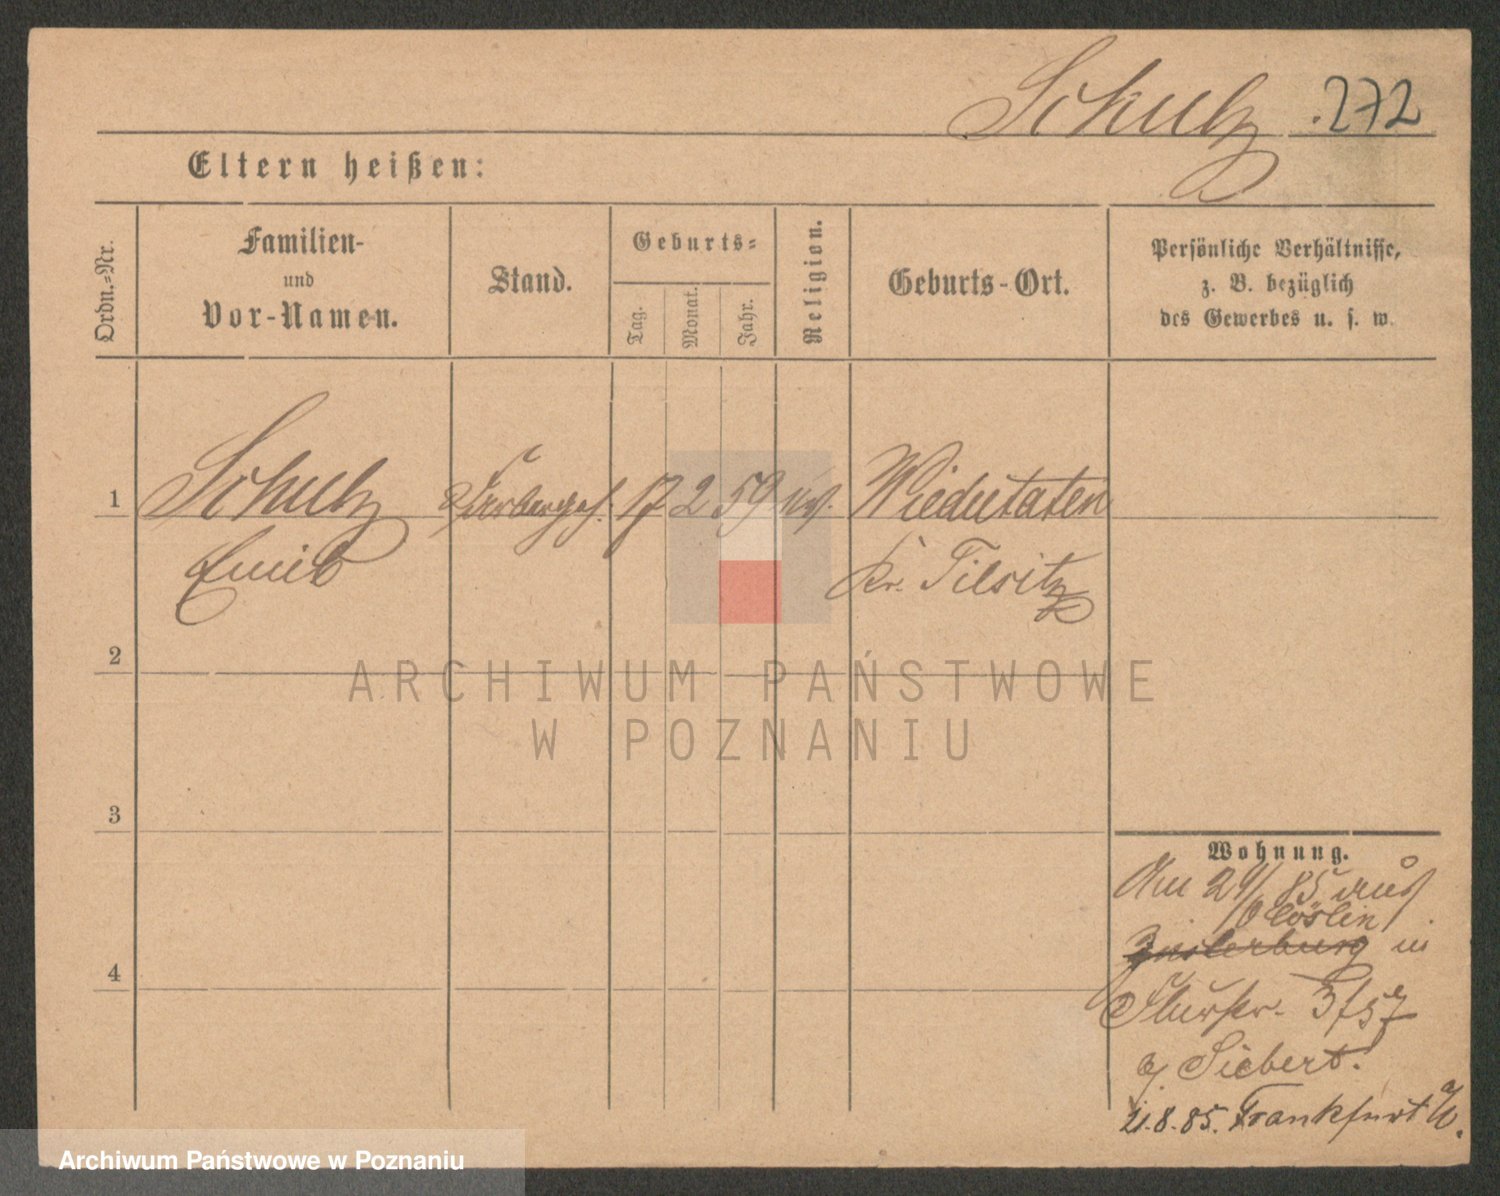 Schulz 272
Eltern heißen:
Ordn.-Nr.
Familien-
und
Vor-Namen.
Stand.
Geburts-
Tag.
Monat.
Jahr.
Religion.
Geburts-Ort.
Persönliche Verhältnisse,
z. B. bezüglich
des Gewerbes u. s. w.
1 Schulz Färberges. 17 2 59 Wiedutaten
Emil Kr. Tilsit
2
3
4
ARCHIWUM PAŃSTWOWE
W POZNANIU
Wohnung.
Am 85 aus
Cöslin
Insterburg in
3/57
Siebert.
21.8.85. Frankfurt a/O.
Archiwum Państwowe w Poznaniu